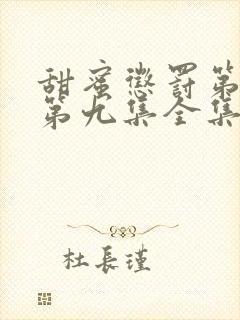 甜蜜懲罰第
第九集全集
杜長瑾